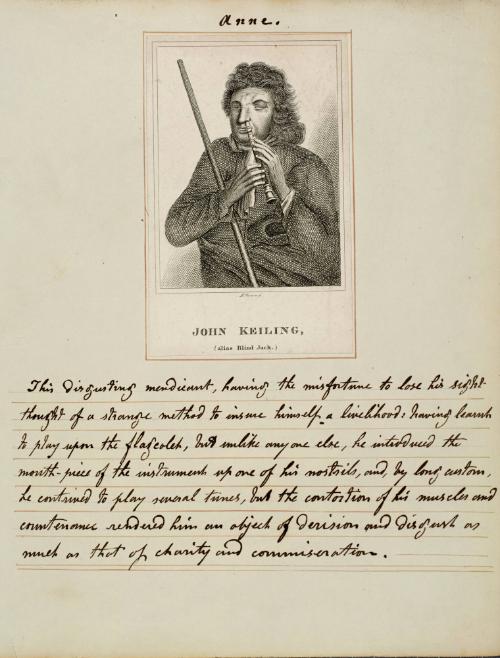 Anne.
JOHN KEILING,
(alias Blind Jack.)
This disgusting mendicant, having the misfortune to lose his sight
thought of a strange method to insure himself a livelihood: having learnt
to play upon the flageolet, but unlike any one else, he introduced the
mouth-piece of the instrument up one of his nostrils, and, by long custom,
he contrived to play several tunes, but the contortion of his muscles and
countenance rendered him an object of derision and disgust as
much as that of charity and commiseration.